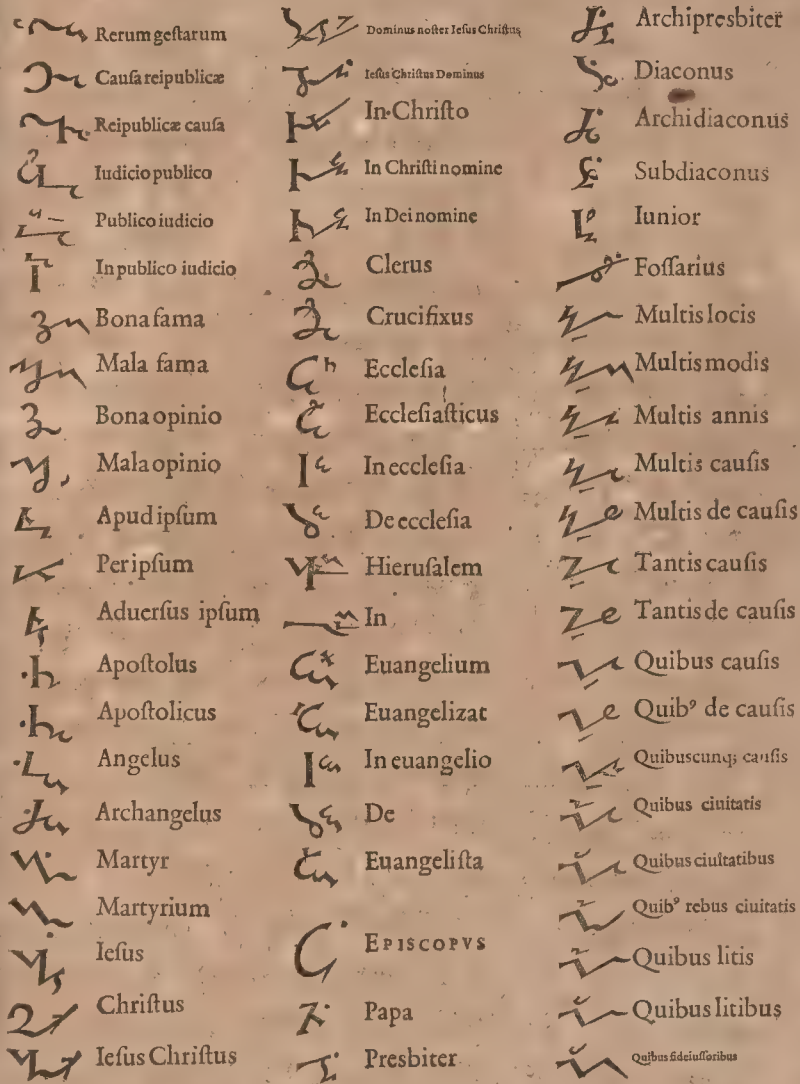 Rerum geſtarum
Cauſa reipublicæ
Reipublicæ cauſa
Iudicio publico
Publico iudicio
In publico iudicio
Bona fama
Mala fama
Bona opinio
Mala opinio
Apud ipſum
Per ipſum
Aduerſus ipſum
Apoſtolus
Apoſtolicus
Angelus
Archangelus
Martyr
Martyrium
Ieſus
Chriſtus
Ieſus Chriſtus
Dominus noſter Ieſus Chriſtus
Ieſus Chriſtus Dominus
In Chriſto
In Chriſti nomine
In Dei nomine
Clerus
Crucifixus
Eccleſia
Eccleſiaſticus
In eccleſia
De eccleſia
Hieruſalem
In
Euangelium
Euangelizat
In euangelio
De
Euangeliſta
EPISCOPVS
Papa
Presbiter
Archipresbiter
Diaconus
Archidiaconus
Subdiaconus
Iunior
Foſſarius
Multis locis
Multis modis
Multis annis
Multis cauſis
Multis de cauſis
Tantis cauſis
Tantis de cauſis
Quibus cauſis
Quibꝰ de cauſis
Quibuscunq; cauſis
Quibus ciuitatis
Quibus ciuitatibus
Quibꝰ rebus ciuitatis
Quibus litis
Quibus litibus
Quibus fideiuſſoribus